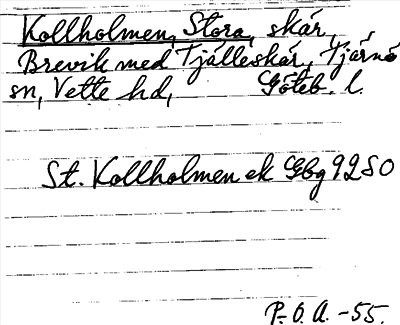 Kollholmen, Stora, skär,
Brevik med Tjälleskär, Tjärnö
sn, Vette hd, Göteb. l.
St. Kollholmen ek Gbg 92 SO
P. O. A. -55.